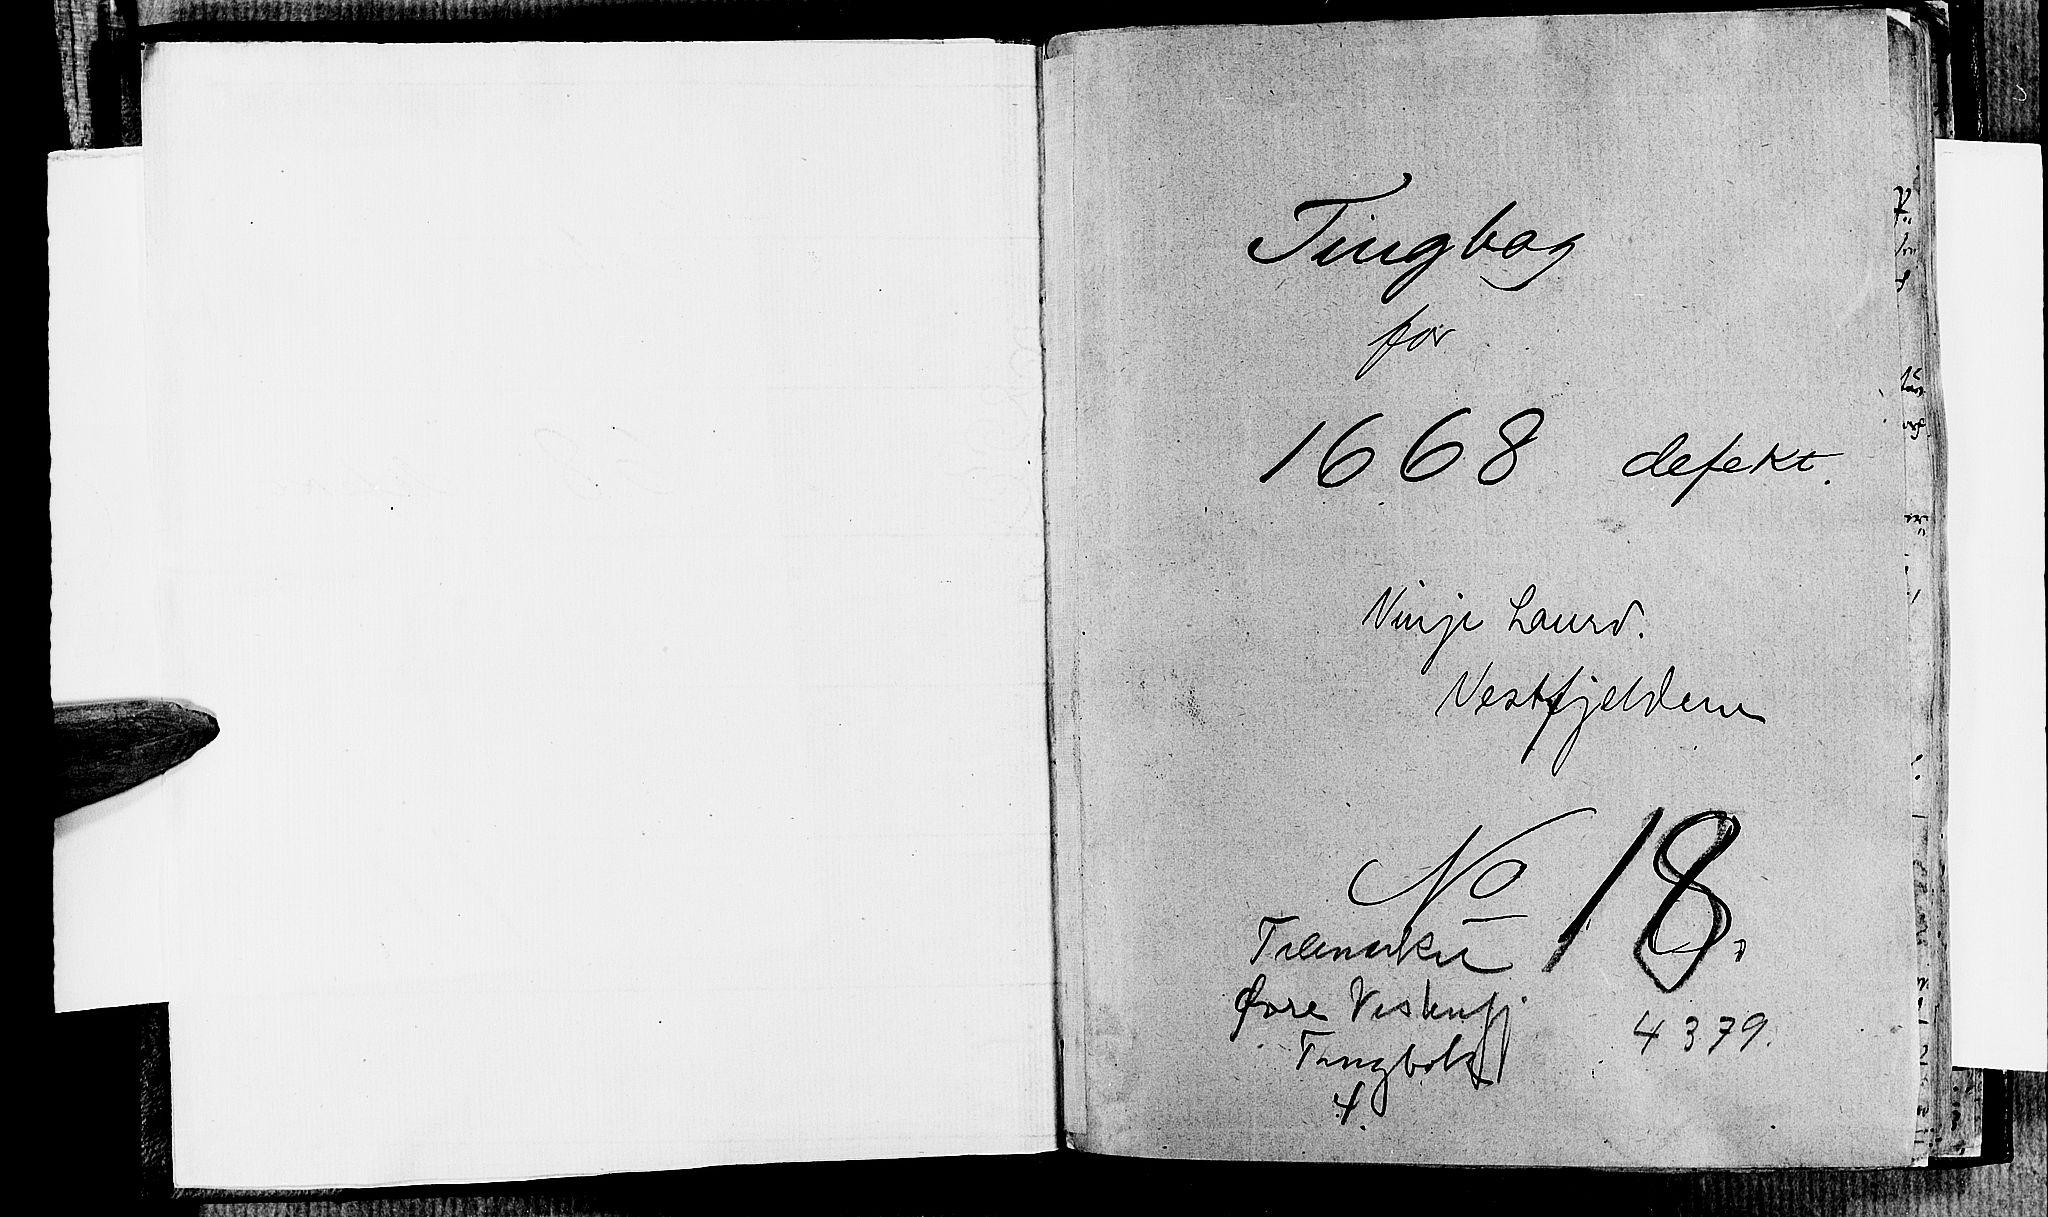 Tingbog
for
1668 defekt.
Vinje Laurd.
Vestfjeldene
No 18.
Telemarken
Øvre Vestenfj
Tingbok
4.
4379.